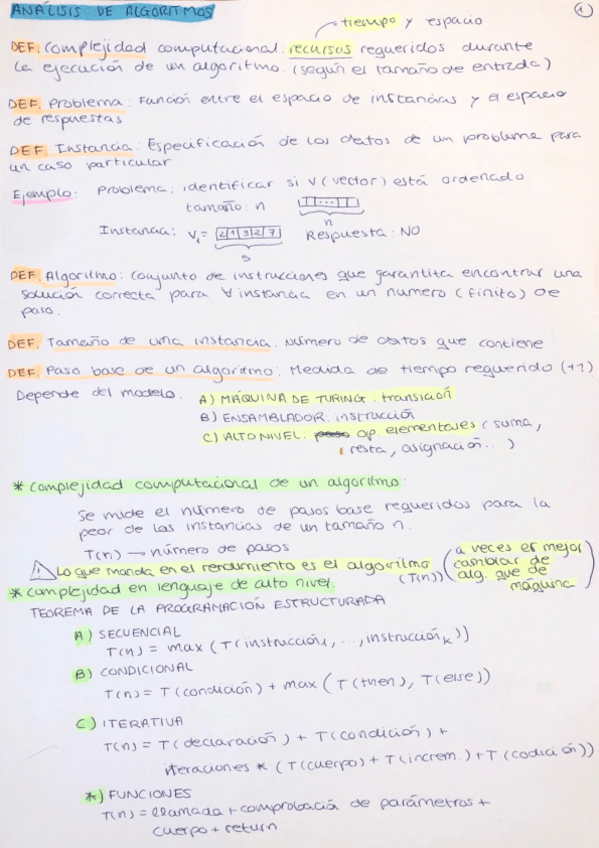 ANÁLISIS DE ALGORITMOS
1
tiempo y espacio
DEF. Complejidad computacional: recursos requeridos durante
la ejecución de un algoritmo. (según el tamaño de entrada)
DEF. Problema: Función entre el espacio de instancias y el espacio
de respuestas
DEF. Instancia: Especificación de los datos de un problema para
un caso particular
Ejemplo: Problema: identificar si V (vector) está ordenado
tamaño: n
n
Instancia: V1 = 2 1 3 2 7 Respuesta: NO
5
DEF. Algoritmo: Conjunto de instrucciones que garantiza encontrar una
solución correcta para ∀ instancia en un numero (finito) de
paso.
DEF. Tamaño de una instancia: Número de datos que contiene
DEF. Paso base de un algoritmo: Medida de tiempo requerido (+1)
Depende del modelo: A) MÁQUINA DE TURING: transición
B) ENSAMBLADOR: instrucción
C) ALTO NIVEL: paso op. elementales (suma,
resta, asignación...)
* Complejidad computacional de un algoritmo:
Se mide el número de pasos base requeridos para la
peor de las instancias de un tamaño n.
T(n) → número de pasos
! Lo que manda en el rendimiento es el algoritmo (T(n)) (a veces es mejor
cambiar de
alg. que de
máquina)
* Complejidad en lenguaje de alto nivel,
TEOREMA DE LA PROGRAMACIÓN ESTRUCTURADA
A) SECUENCIAL
T(n) = max (T(instrucción1, ..., instrucciónk))
B) CONDICIONAL
T(n) = T(condición) + max (T(then), T(else))
C) ITERATIVA
T(n) = T(declaración) + T(condición) +
iteraciones * (T(cuerpo) + T(increm.) + T(codición))
*) FUNCIONES
T(n) = llamada + comprobación de parámetros +
cuerpo + return